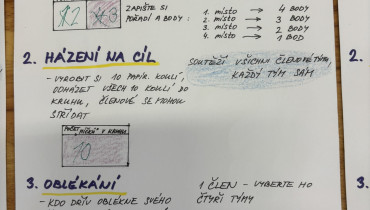 12 3
ZAPIŠTE SI
POŘADÍ A BODY:
1. MÍSTO → 4 BODY
2. MÍSTO → 3 BODY
3. MÍSTO → 2 BODY
4. MÍSTO → 1 BOD
2. HÁZENÍ NA CÍL
- VYROBIT SI 10 PAPÍR. KOULÍ,
ODHÁZET VŠECH 10 KOULÍ DO
KRUHU, ČLENOVÉ SE MOHOU
STŘÍDAT
SOUTĚŽÍ VŠICHNI ČLENOVÉ TÝMU,
KAŽDÝ TÝM SÁM
POČET "MÍČKŮ" V KRUHU
10
3. OBLÉKÁNÍ
- KDO DŘÍV OBLÉKNE SVÉHO
1 ČLEN - VYBERTE HO
ČTYŘI TÝMY
2.
3.